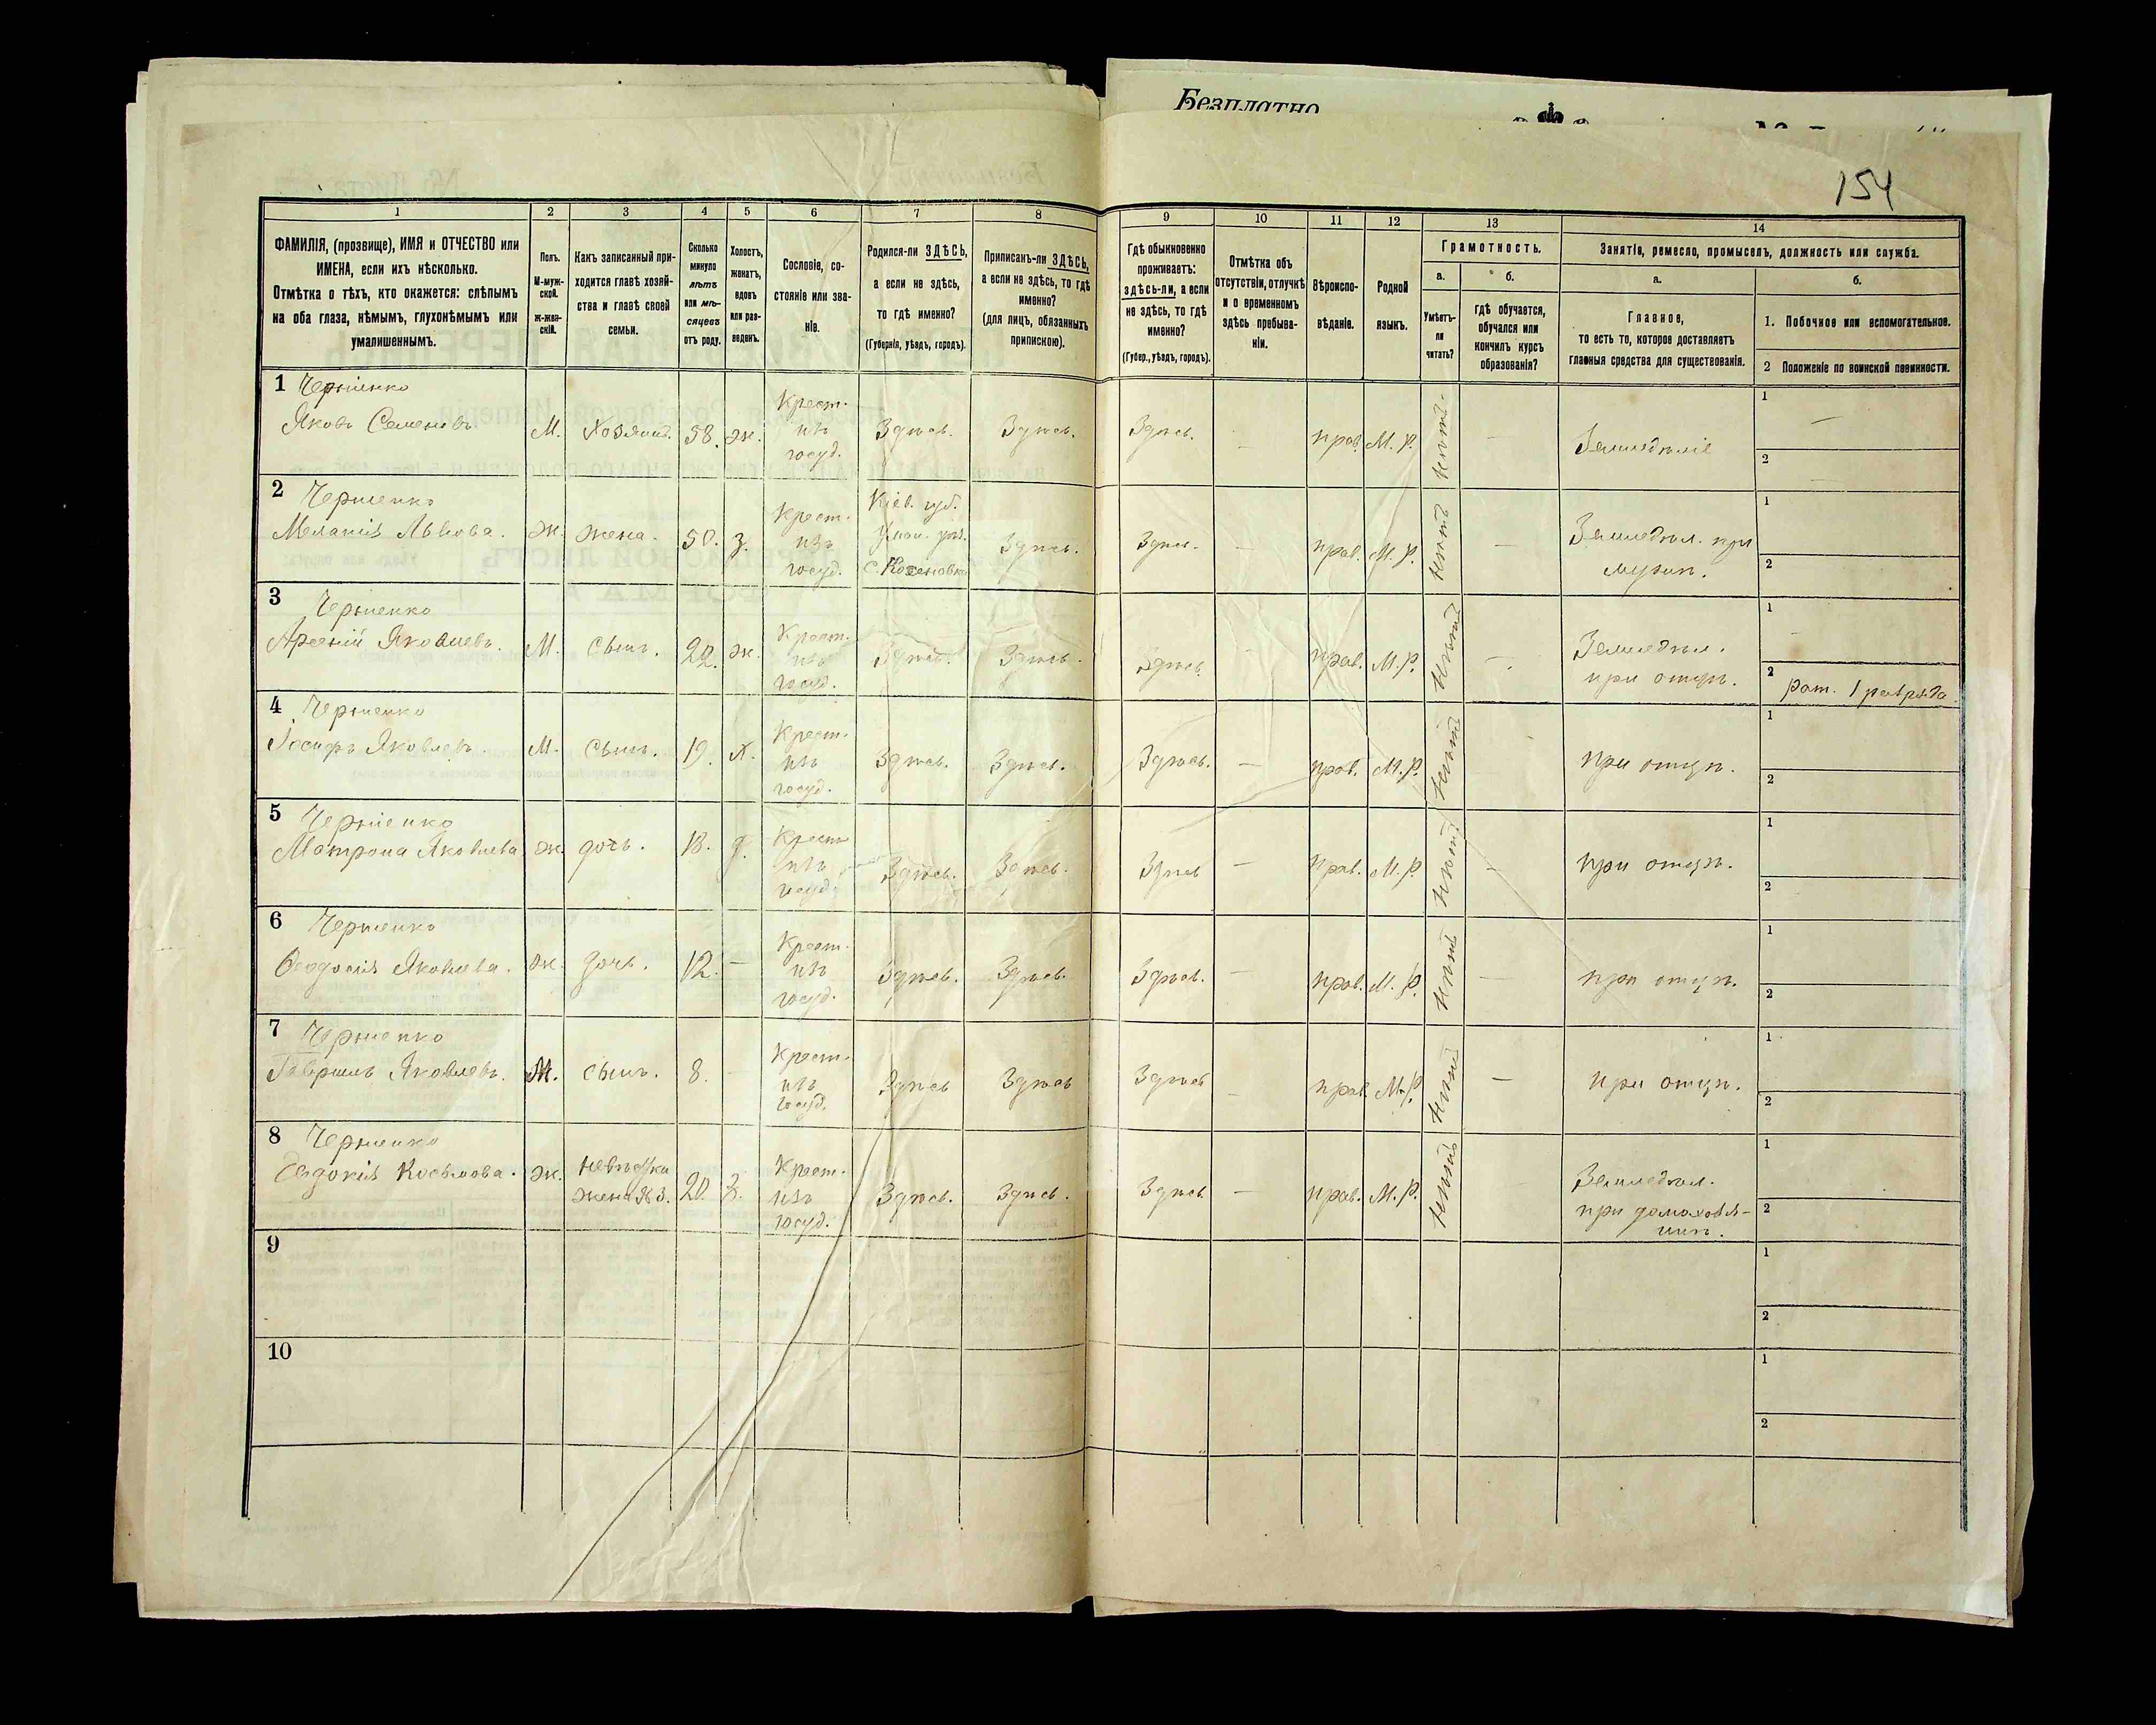 Безплатно
154
1 2 3 4 5 6 7 8 9 10 11 12 13 14
ФАМИЛІЯ, (прозвище), ИМЯ и ОТЧЕСТВО или
ИМЕНА, если ихъ нѣсколько.
Отмѣтка о тѣхъ, кто окажется: слѣпымъ
на оба глаза, нѣмымъ, глухонѣмымъ или
умалишеннымъ.
Полъ.
М-муж-
ской.
ж-жен-
скій.
Какъ записанный при-
ходится главѣ хозяй-
ства и главѣ своей
семьи.
Сколько
минуло
лѣтъ
или мѣ-
сяцевъ
отъ роду.
Холостъ,
женатъ,
вдовъ
или раз-
веденъ.
Сословіе, со-
стояніе или зва-
ніе.
Родился-ли ЗДѢСЬ,
а если не здѣсь,
то гдѣ именно?
(Губернія, уѣздъ, городъ).
Приписанъ-ли ЗДѢСЬ,
а если не здѣсь, то гдѣ
именно?
(для лицъ, обязанныхъ
припискою).
Гдѣ обыкновенно
проживаетъ:
здѣсь-ли, а если
не здѣсь, то гдѣ
именно?
(Губер., уѣздъ, городъ).
Отмѣтка объ
отсутствіи, отлучкѣ
и о временномъ
здѣсь пребыва-
ніи.
Вѣроиспо-
вѣданіе.
Родной
языкъ.
Грамотность.
а.
Умѣетъ-
ли
читать?
б.
гдѣ обучается,
обучался или
кончилъ курсъ
образованія?
Занятіе, ремесло, промыселъ, должность или служба.
а.
Главное,
то есть то, которое доставляетъ
главныя средства для существованія.
б.
1. Побочное или вспомогательное.
2 Положеніе по воинской повинности.
1 Черненко
Яковъ Семеновъ М. Хозяинъ. 58. ж. Крест. изъ госуд. Здѣсь. Здѣсь. Здѣсь. — прав. М. р. нѣтъ — Земледѣліе 1 — 2
2 Черненко
Меланія Львова. Ж. жена. 50. з. Крест. изъ госуд. Кіев. губ. Уман. уѣз. с. Здѣсь. Здѣсь. — прав. М. р. нѣтъ — Земледѣл. при мужѣ. 1 2
3 Черненко
Арсеній Яковлевъ. М. сынъ. 22. ж. Крест. изъ госуд. Здѣсь. Здѣсь. Здѣсь. — прав. М. р. нѣтъ — Земледѣл. при отцѣ. 1 2 рат. 1 разряда
4 Черненко
Іосифъ Яковлевъ. М. сынъ. 19. х. Крест. изъ госуд. Здѣсь. Здѣсь. Здѣсь. — прав. М. р. нѣтъ при отцѣ. 1 2
5 Черненко
Матрона Яковлева ж. дочь. 18. д. Крест. изъ госуд. Здѣсь. Здѣсь. Здѣсь — прав. М. р. нѣтъ — при отцѣ. 1 2
6 Черненко
Ѳеодосія Яковлева. ж. дочь. 12. — Крест. изъ госуд. Здѣсь. Здѣсь. Здѣсь. — прав. М. р. нѣтъ — при отцѣ. 1 2
7 Черненко
Гавріилъ Яковлевъ. М. сынъ. 8. - Крест. изъ госуд. Здѣсь Здѣсь Здѣсь — прав. М. р. нѣтъ — при отцѣ. 1 2
8 Черненко
Евдокія Косьмова. ж. невѣстка жена № 3. 20. з. Крест. изъ госуд. Здѣсь. Здѣсь. Здѣсь — прав. М. р. нѣтъ Земледѣл. при домохозя- инѣ. 1 2
9 1 2
10 1 2